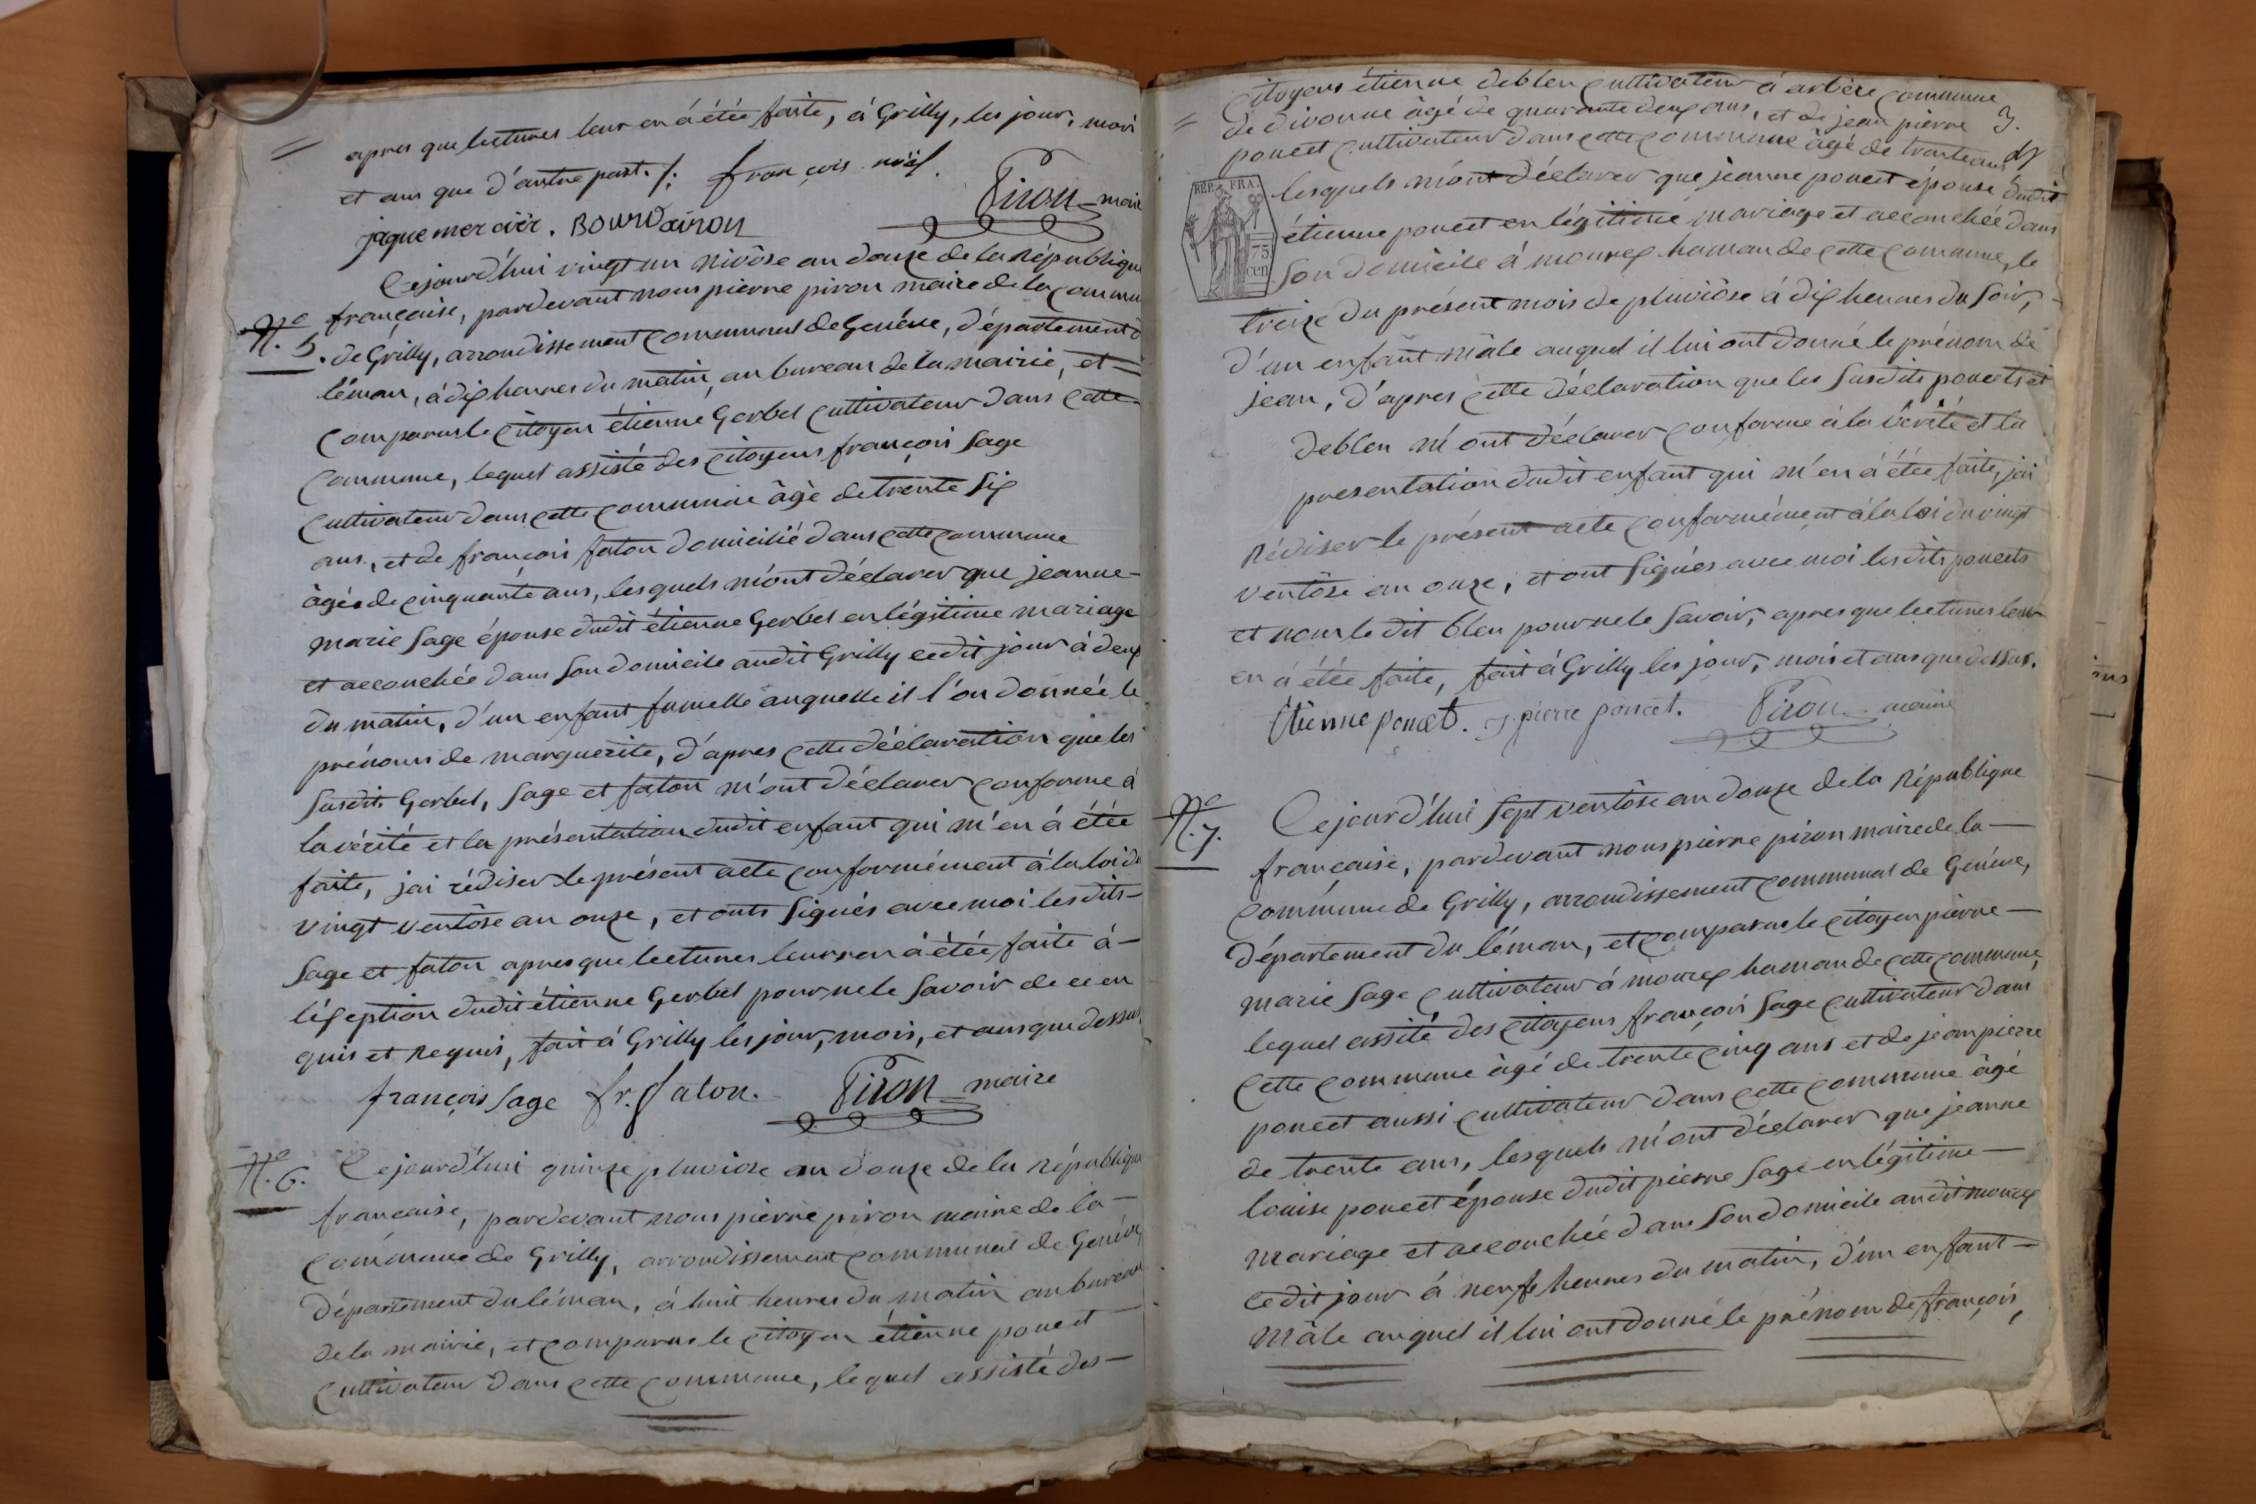 apres que lectures leur en á étée faite, á Grilly, les jour, mois
et ans que d'autre part. /: françois noël.
jaque mercier. BOURDINON Piron maire
Cejourd'hui vingt un nivôse an douze de la République
N.o 5. française, pardevant nous pierre piron maire de la commu
de Grilly, arrondissement communal de Genève, département d
léman, á dix heures du matin, au bureau de la mairie, et =
comparus le citoyen étienne Gerbel cultivateur dans cette
commune, lequel assisté des citoyens françois Sage
cultivateur dans cette commune âgè de trente six
ans, et de françois faton domicilié dans cette commune
âgée de cinquante ans, lesquels m'ont déclarer que jeanne-
marie Sage épouse dudit étienne Gerbel en légitime mariage
et accouchée dans son domicile audit Grilly cedit jour á deux
du matin, d'un enfant fumelle auquelle il l'on donnée le
prénoms de marguerite, d'apres cette déclaration que les
susdits Gerbel, Sage et faton m'ont déclarer conforme á
la vérité et la présentation dudit enfant qui m'en á étée
faite, jai rédiser le présent acte conformément á la loi du
vingt ventôse an onze, et onts signés avec moi lesdits-
Sage et faton apres que lectures leur en á étée faite á-
léxeption dudit étienne Gerbel pour ne le savoir de ce en
quis et Requis, fait á Grilly les jour, mois, et ans que dessus,
françois Sage fr. faton. Piron maire
N.o 6. Cejourd'hui quinze pluviose an douze de la République
française, pardevant nous pierre piron maire de la-
commune de Grilly, arrondissement communal de Genève,
département du léman, á huit heures du matin au bureau
de la mairie, et comparus le citoyen étienne poncet
cultivateur dans cette commune, lequel assisté des-
citoyens étienne deblen cultivateur á arbère commune
de divonne âgé de quarante deux ans, et de jean pierre 3.
poncet cultivateur dans cette commune âgé de trente ans
REP. FRA.
75
cen
lesquels m'ont déclarer que jeanne poncet épouse dudit
étienne poncet en légitime mariage et accouchée dans
son domicile á mourex hamau de cette commune, le
treize du présent mois de pluviôse á dix heures du soir,
d'un enfant mâle auquel il lui ont donné le prénom de
jean, d'apres cette déclaration que les susdits poncets et
deblen m'ont déclarer conforme á la vérité et la
presentation dudit enfant qui m'en á étée faite, jai
Rédiser le présent acte conformément á la loi du vingt
ventôse an onze, et ont signés avec moi lesdits poncets
et non ledit blen pour ne le savoir, apres que lectures leur
en á étée faite, fait á Grilly les jour, mois et ans que dessus.
Etienne poncet. J pierre poncet. Piron maire
N.o 7. Cejourd'hui sept ventôse an douze de la République
française, pardevant nous pierre piron maire de la-
commune de Grilly, arrondissement communal de Genève,
département du léman, et comparus le citoyen pierre-
marie Sage cultivateur á mourex hamau de cette commune,
lequel assité des citoyens françois Sage cultivateur dans
cette commune âgé de trente cinq ans et de jean pierre
poncet aussi cultivateur dans cette commune âgé
de trente ans, lesquels m'ont déclarer que jeanne
louise poncet épouse dudit pierre Sage en légitime-
mariage et accouchée dans son domicile audit mourex
cedit jour á neufs heures du matin, d'un enfant-
mâle auquel il lui ont donné le prénom de françois,